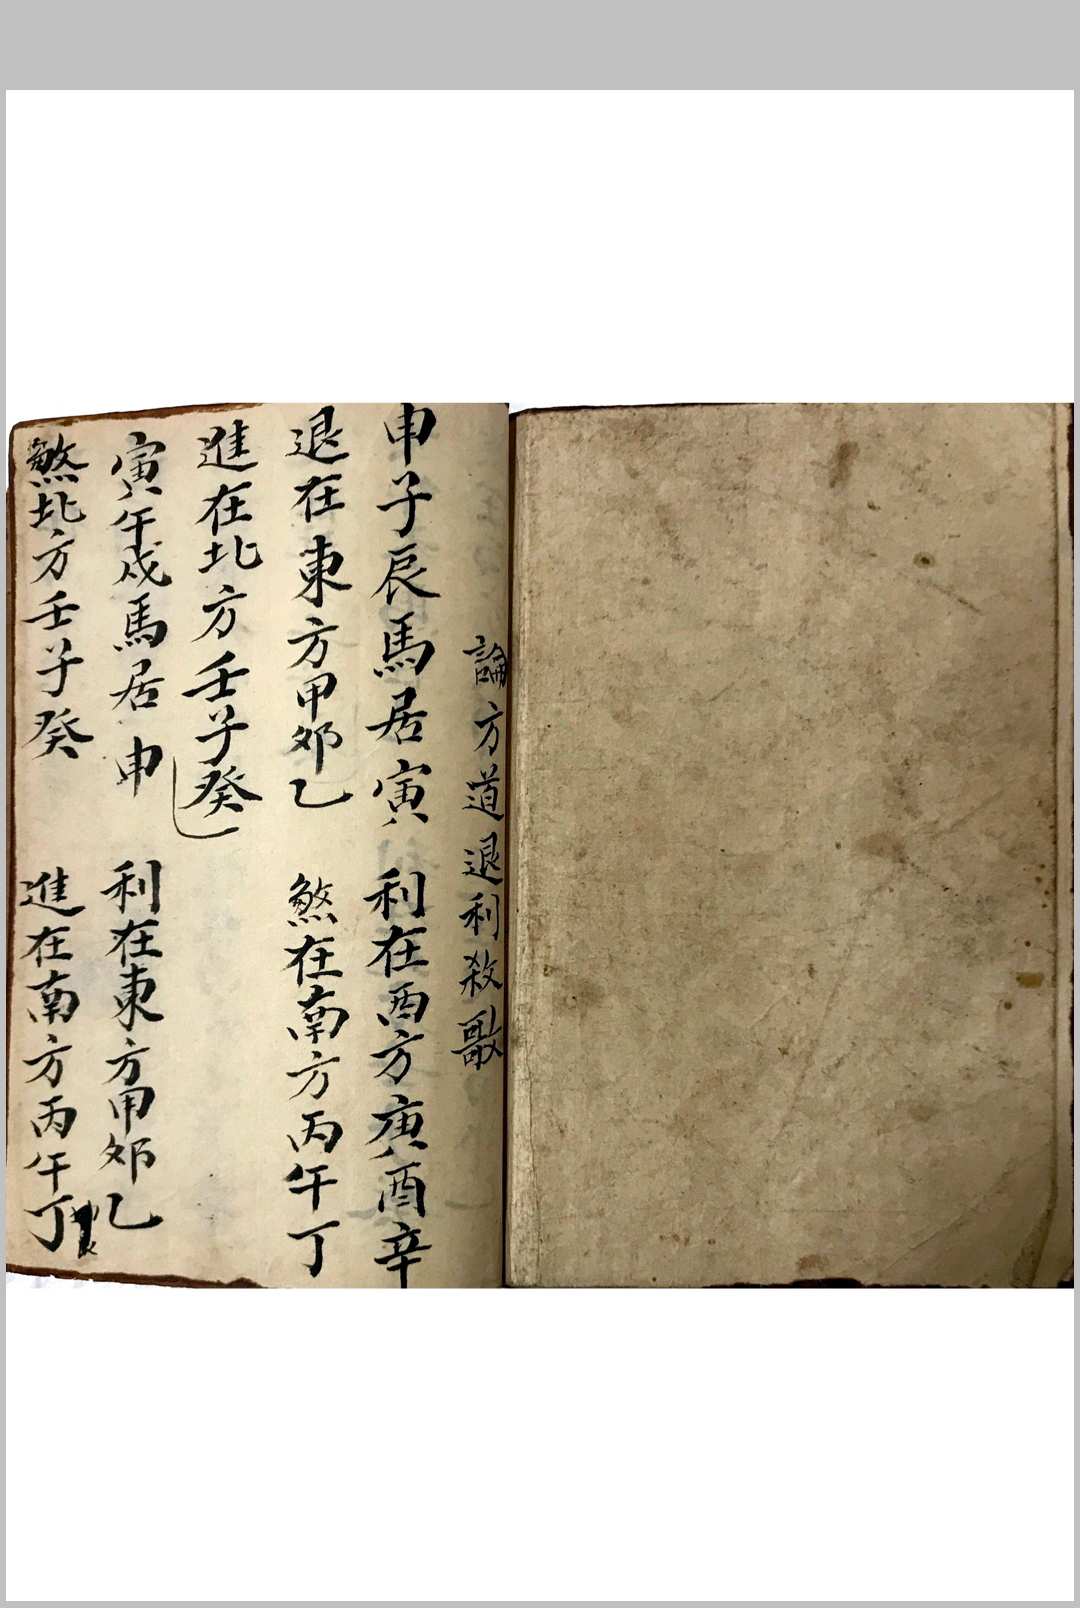 論方道退利殺歌
申子辰馬居寅 利在西方庚酉辛
退在東方甲卯乙 煞在南方丙午丁
進在北方壬子癸
寅午戌馬居申 利在東方甲卯乙
煞北方壬子癸 進在南方丙午丁